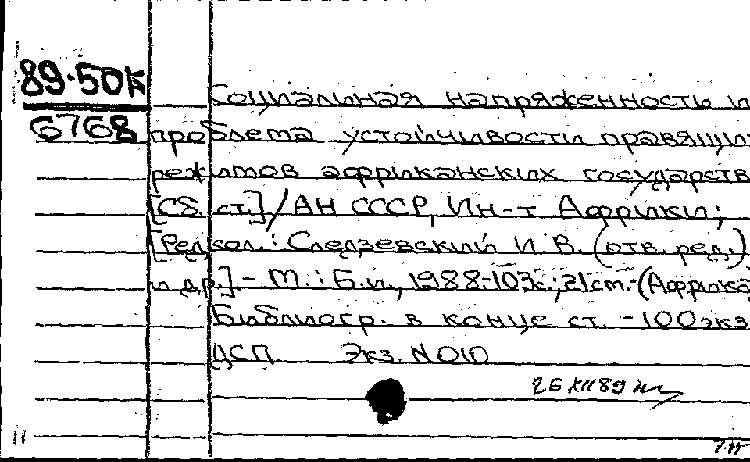 89-50К
6768
Социальная напряженность и
проблема устойчивости правящих
режимов африканских государств
[Сб. ст.] / АН СССР, Ин-т Африки;
[Редкол.: Следзевский И. В. (отв. ред.)
и др.]. - М.: Б.и., 1988-103с.; 21см. - (Африка
Библиогр. в конце ст. - 100 экз
ДСП Экз. N 010
26 XII 89